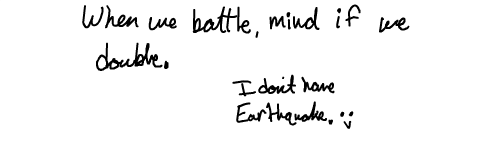 When we battle, mind if we
double.
I don't have
Earthquake. :)